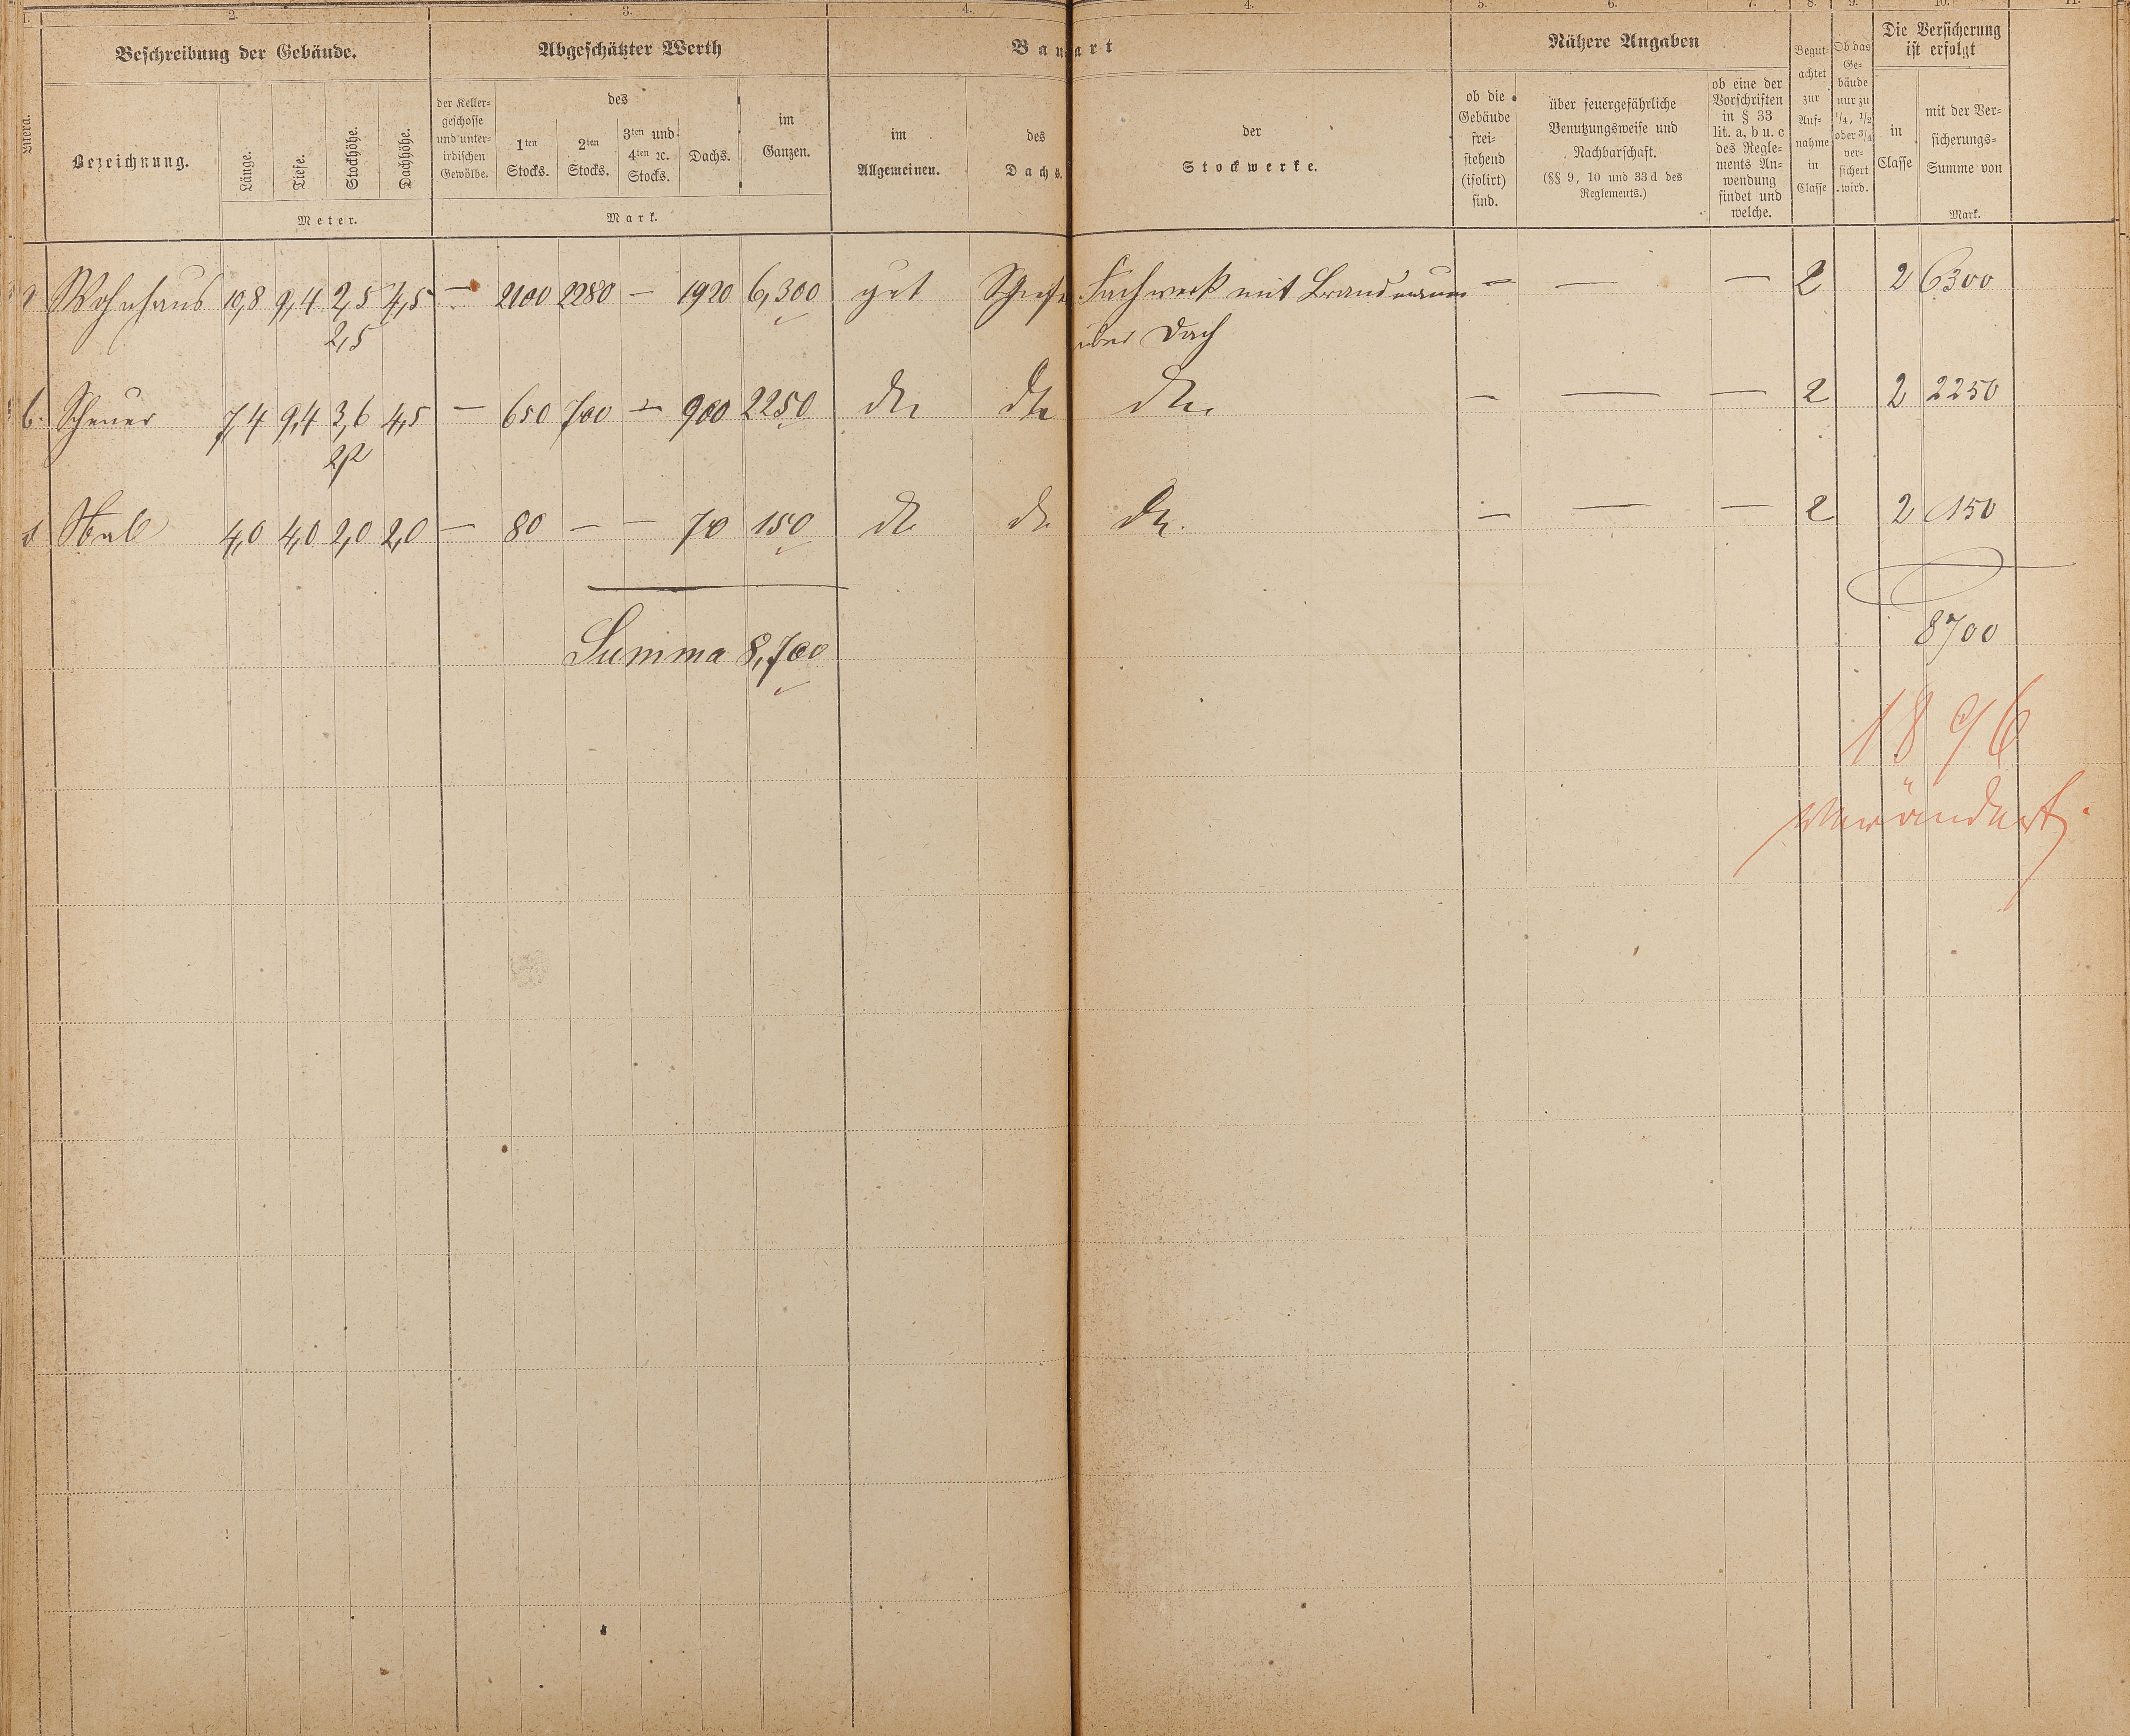 1. 2. 3. 4. 4. 5. 6. 7. 8. 9. 10. 11.
Littera.
Beschreibung der Gebäude.
Bezeichnung.
Länge.
Tiefe.
Stockhöhe.
Dachhöhe.
Meter.
Abgeschätzter Werth
der Keller-
geschosse
und unter-
irdischen
Gewölbe.
des
1ten
Stocks.
2ten
Stocks.
3ten und
4ten ꝛc.
Stocks.
Dachs.
im
Ganzen.
Mark.
Bauart
im
Allgemeinen.
des
Dachs.
der
Stockwerke.
Nähere Angaben
ob die
Gebäude
frei-
stehend
(isolirt)
sind.
über feuergefährliche
Benutzungsweise und
Nachbarschaft.
(§§ 9, 10 und 33 d des
Reglements.)
ob eine der
Vorschriften
in § 33
lit. a, b u. c
des Regle-
ments An-
wendung
findet und
welche.
Begut-
achtet
zur
Auf-
nahme
in
Classe
Ob das
Ge-
bäude
nur zu
1/4, 1/2
oder 3/4
ver-
sichert
wird.
Die Versicherung
ist erfolgt
in
Classe
mit der Ver-
sicherungs-
Summe von
Mark.
Wohnhaus 10,8 9,4 2,5 4,5 — 2100 2280 — 1920 6,300 gut Schiefer Fachwerk mit Brandmauer — — — 2 2 6300
2,5 über Dach
b. Scheuer 7,4 9,4 3,6 4,5 — 650 700 — 900 2250 dto dto dto — — — 2 2 2250
2,2
Stall 4,0 4,0 2,0 2,0 — 80 — — 70 150 dto dto dto. — — — 2 2 150
Summa 8,700 8700
1896
verändert.